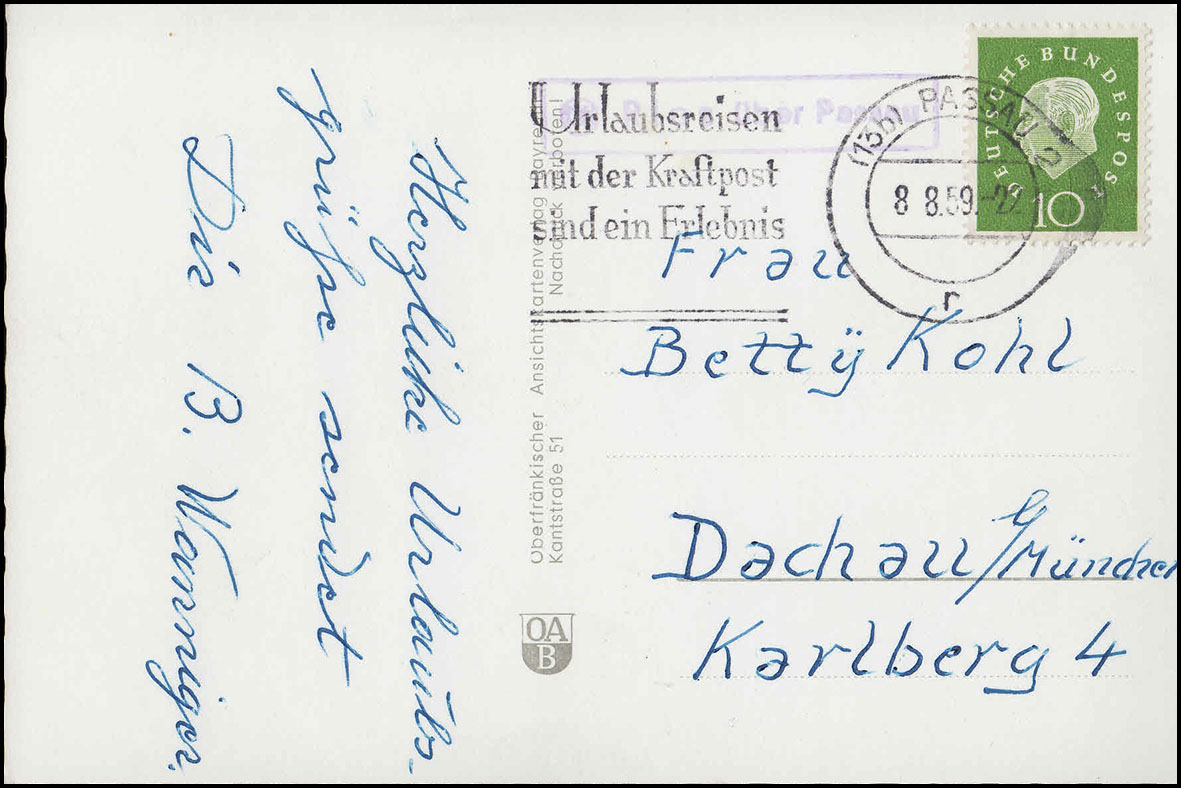 Herzliche Urlaubs-
grüße sendet
Dir B. Wanniger.
Urlaubsreisen
mit der Kraftpost
sind ein Erlebnis
über Passau
(13b) PASSAU 2
8 8.59.-22
r
DEUTSCHE BUNDESPOST
10
Oberfränkischer Ansichtskartenverlag
Kantstraße 51 Nachdruck verboten!
OA
B
Frau
Betty Kohl
Dachau b/München
Karlberg 4